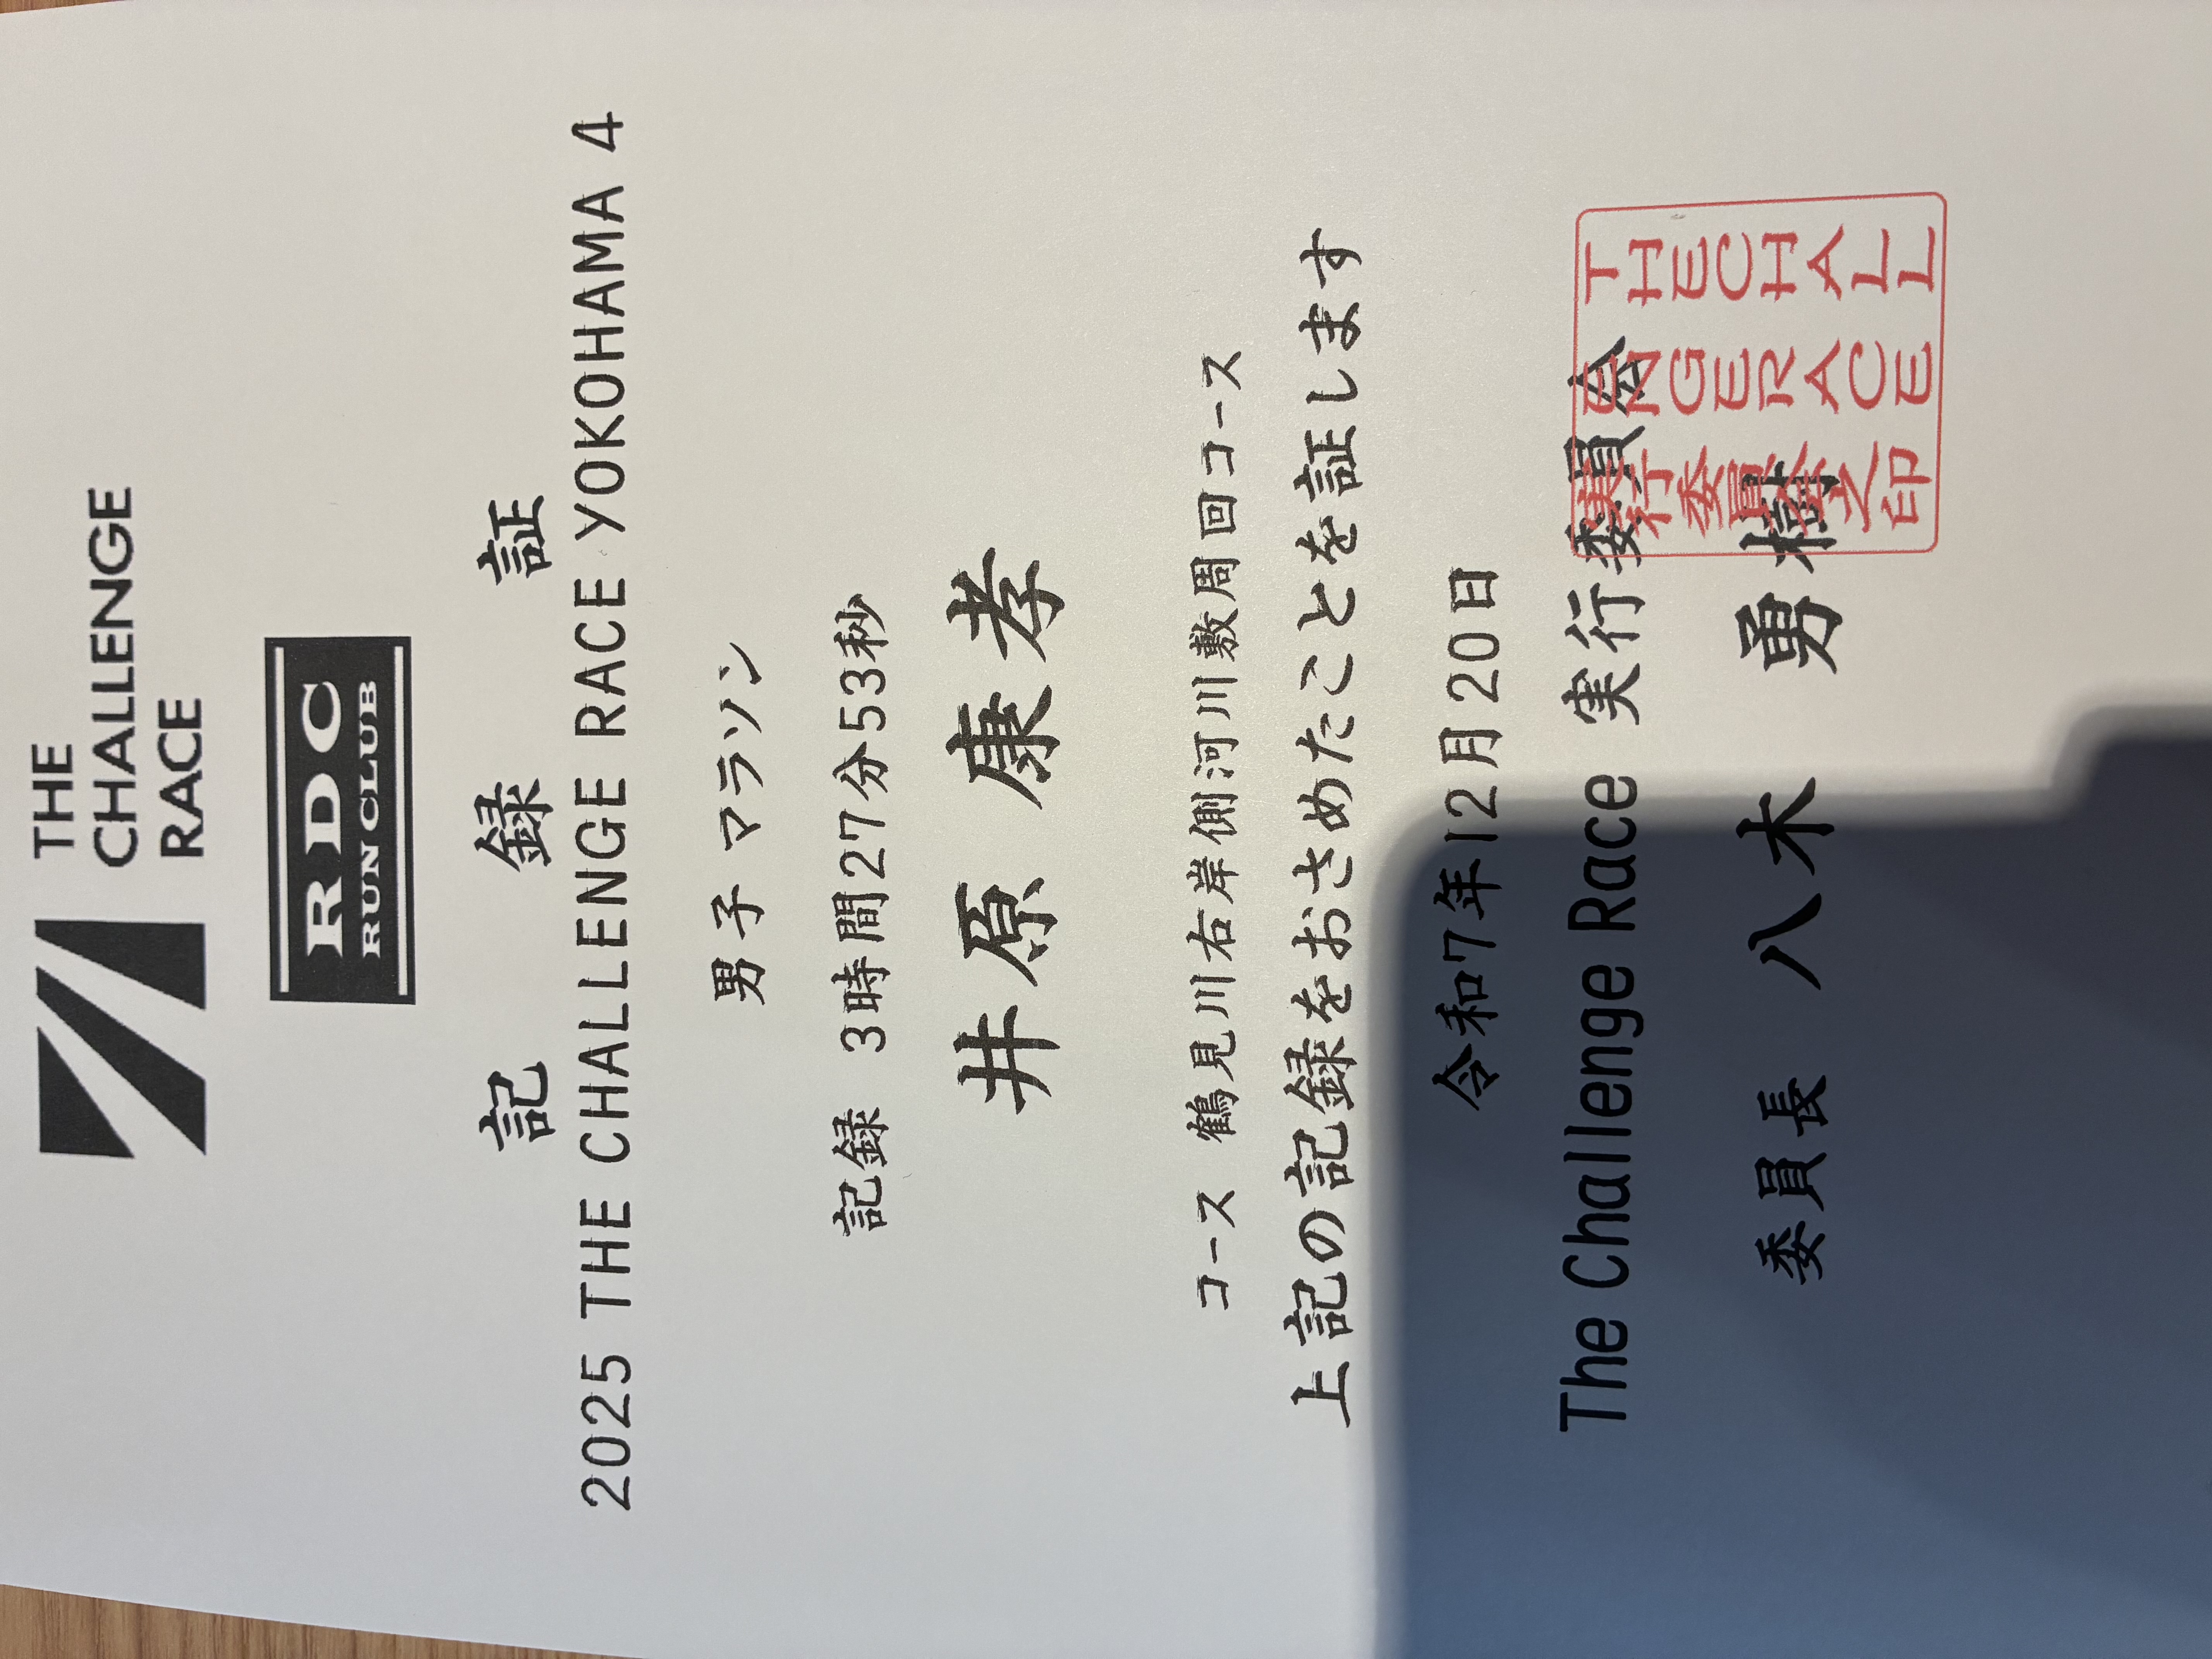 THE
CHALLENGE
RACE
RDC
RUN CLUB
記 録 証
2025 THE CHALLENGE RACE YOKOHAMA 4
男子 マラソン
記録 3時間27分53秒
井原 康孝
コース 鶴見川右岸側河川敷周回コース
上記の記録をおさめたことを証します
令和7年12月20日
The Challenge Race 実行委員会
委員長 八木 勇樹
THECHALL
ENGERACE
実行委員会之印